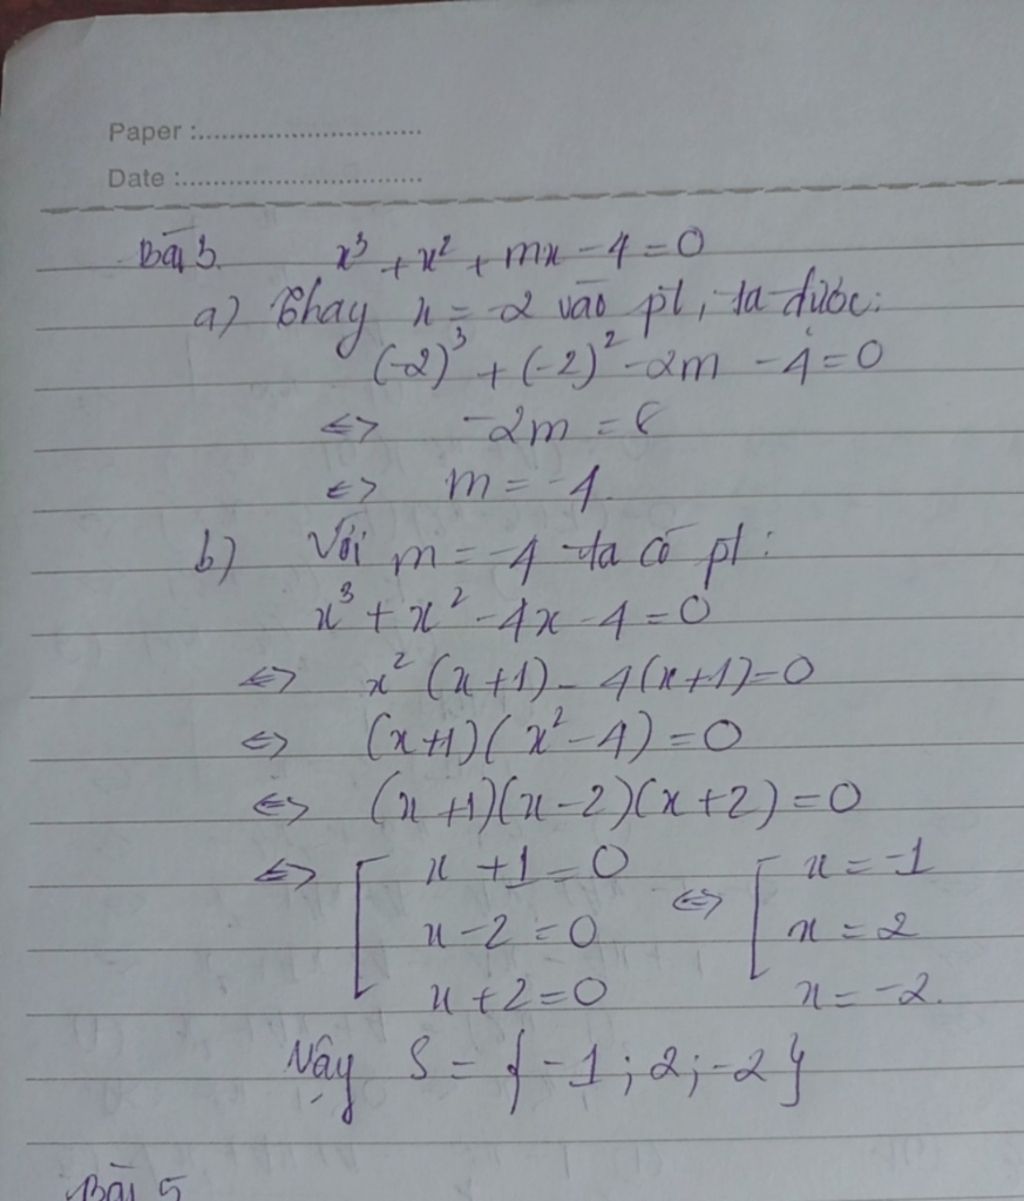 Paper :..............................
Date :...............................
Bài 3. x³ + x² + mx - 4 = 0
a) Thay x = -2 vào pt, ta được:
(-2)³ + (-2)² - 2m - 4 = 0
<=> -2m = 8
<=> m = -4.
b) Với m = -4 ta có pt:
x³ + x² - 4x - 4 = 0
<=> x² (x+1) - 4(x+1) = 0
<=> (x+1)( x² - 4) = 0
<=> (x+1)(x-2)(x+2) = 0
<=> [ x + 1 = 0 <=> [ x = -1
x - 2 = 0 x = 2
x + 2 = 0 x = -2.
Vậy S = { -1 ; 2 ; -2 }
Bài 5